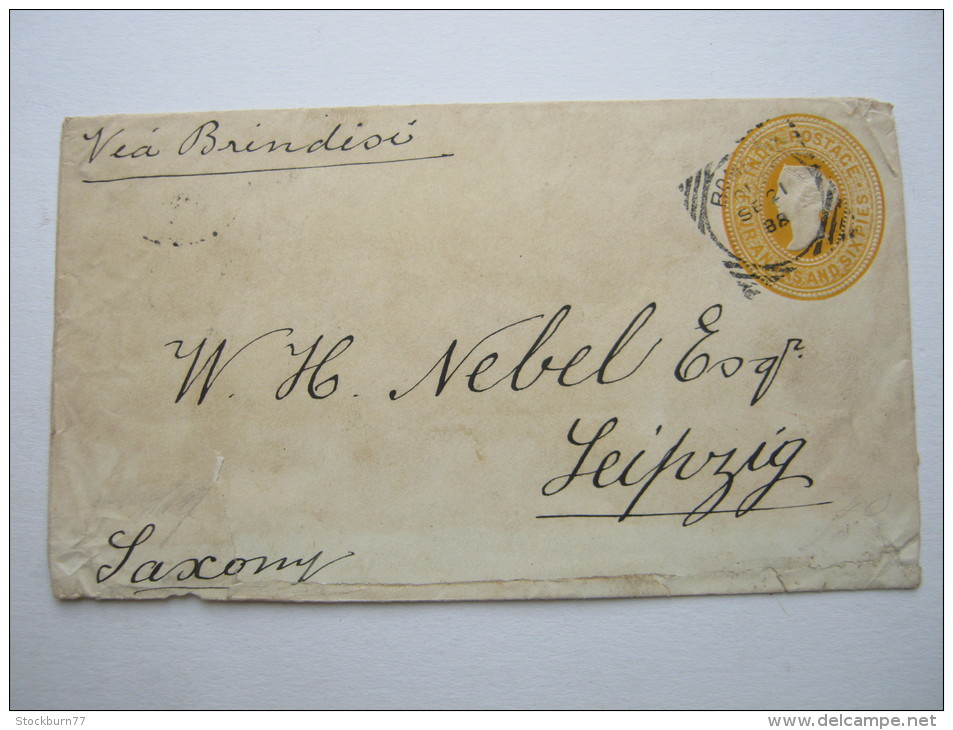 Viá Brindisi
INDIA POSTAGE
FOUR ANNAS AND SIX PIES
SE 21
88
W. H. Nebel Esqr.
Leipzig
Saxony
Stockburn77
www.delcampe.net